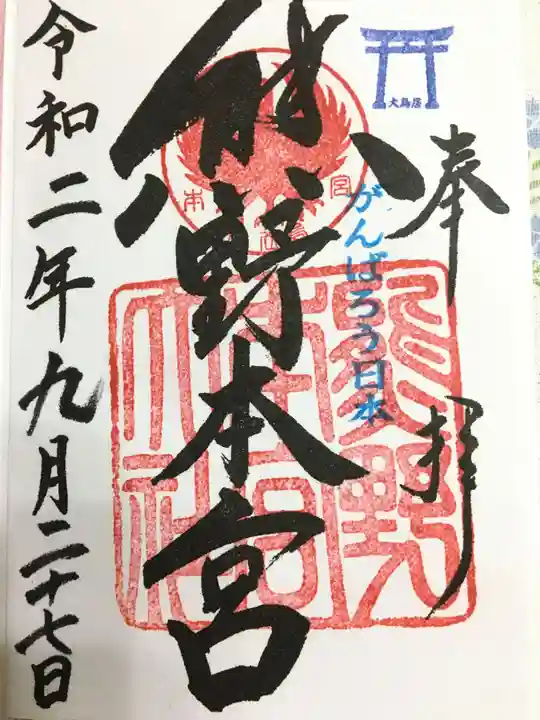 奉拝
大鳥居
がんばろう日本
熊野本宮
令和二年九月二十七日